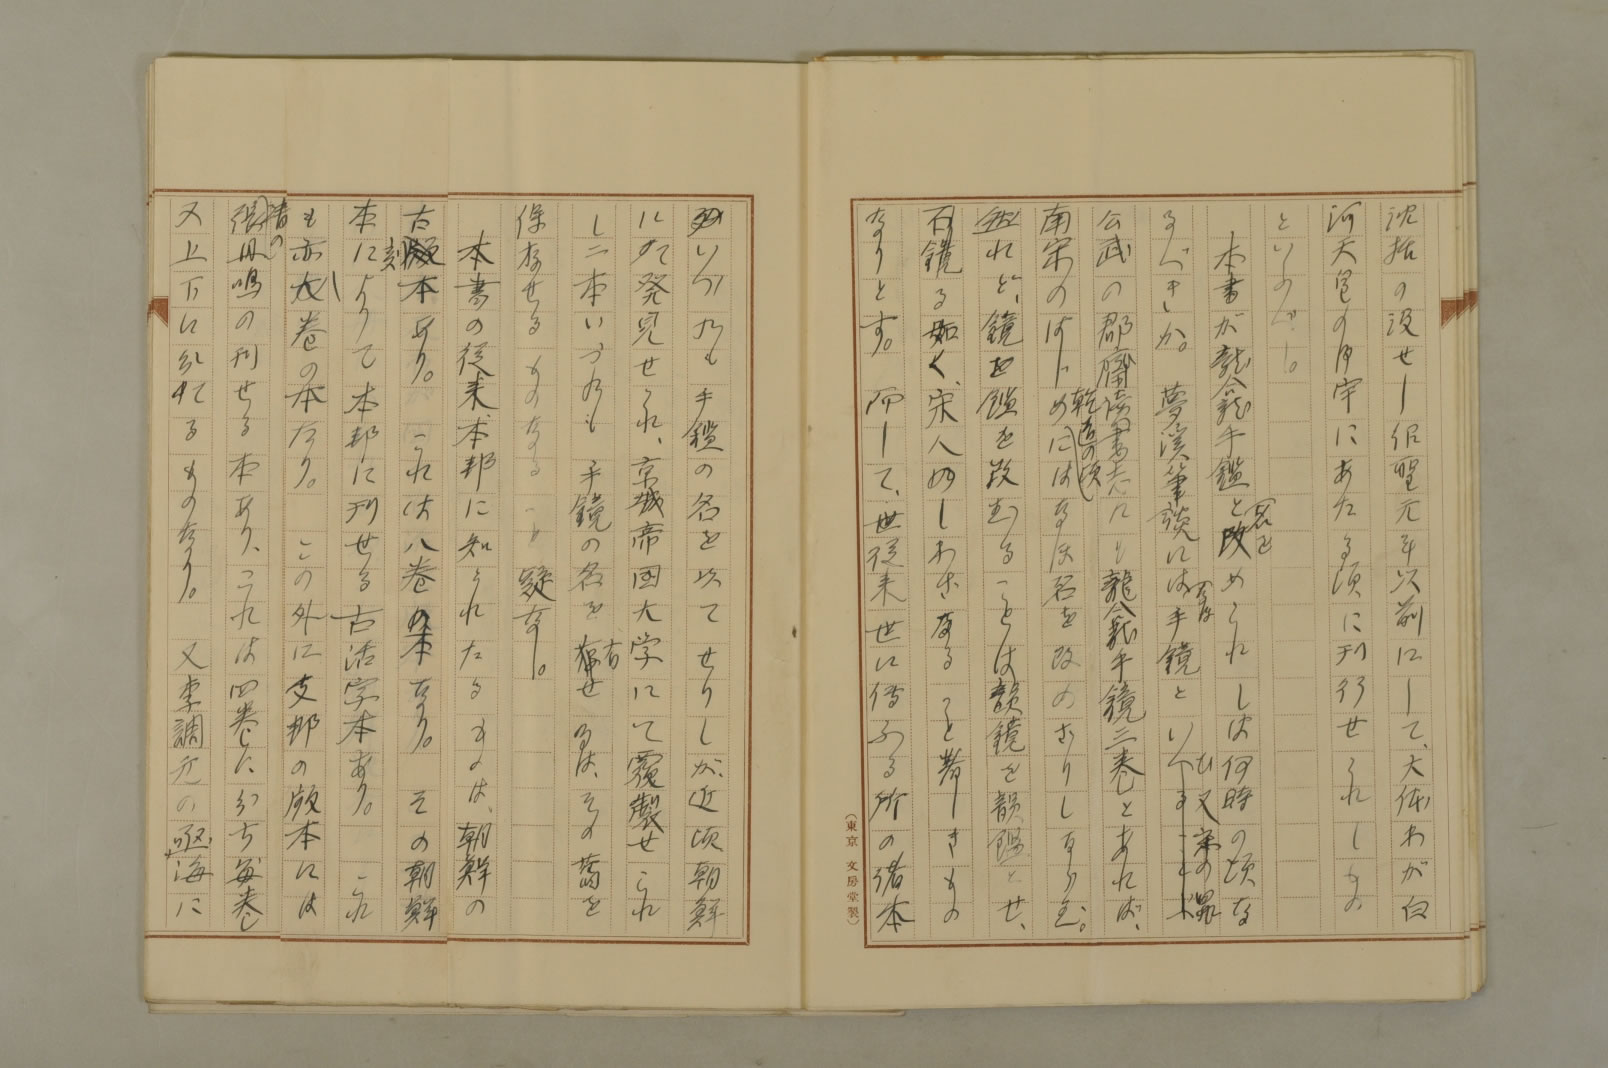 沈括の没せし後聖元年以前にして、大体わが白
河天皇の御宇にあたる頃に刊行せられしもの
といふべし。
本書が龍龕手鑑と名を改められしは何時の頃な
るべきか。夢渓筆談には手鏡といへり
公武の郡斎読書志にも龍龕手鏡三巻とあれば、
南宋のはじめ乾道の頃にはなほ名を改めざりしならむ。
然れど、鏡を鑑と改むることは韻鏡を韻鑑とせ、
石鏡る如く、宋人のしわざなること著しきもの
なりとす。而して、世従来世に伝ふる所の諸本
いづれも手鑑の名を以てせりしが、近頃朝鮮
にて発見せられ、京城帝国大学にて覆製せられ
し二本いづれも手鏡の名を有せるは、その旧を
保存せるものなること疑なし。
本書の従来本邦に知られたるものは、朝鮮の
古刻本あり。これは八巻の本なり。その朝鮮
本によりて本邦に刊せる古活字本あり。これ
も亦八巻の本なり。この外に支那の版本には
清の張丹鳴の刊せる本あり、これは四巻に分ち毎巻
又上下に分てるものなり。又李調元の函海に
(東京 文房堂製)